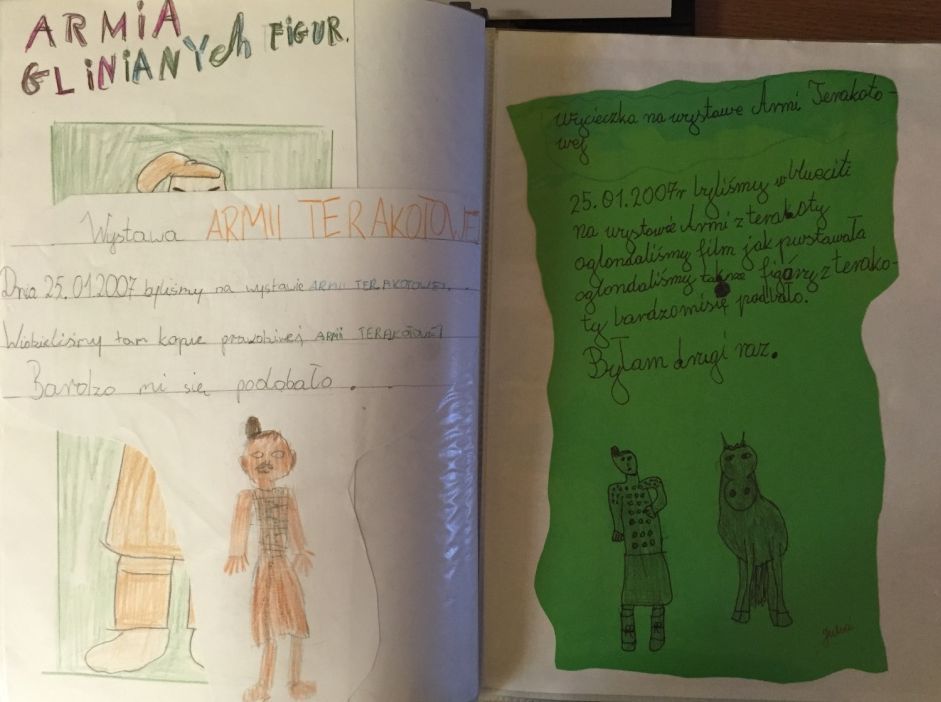 ARMIA
GLINIANYCh FIGUR.
Wystawa ARMII TERAKOTOWE
Dnia 25.01.2007 byliśmy na wystawie ARMII TERAKOTOWEJ.
Widzieliśmy tam kopie prawdziwej ARMII TERAKOTOWEJ
Bardzo mi się podobało.
Wycieczka na wystawę Armi Terakoto-
wej
25.01.2007r byliśmy w blueciti
na wystawie Armi z terakoty
oglondaliśmy film jak powstawała
oglondaliśmy także figóry z terako-
ty bardzomisię podobało.
Byłam drugi raz.